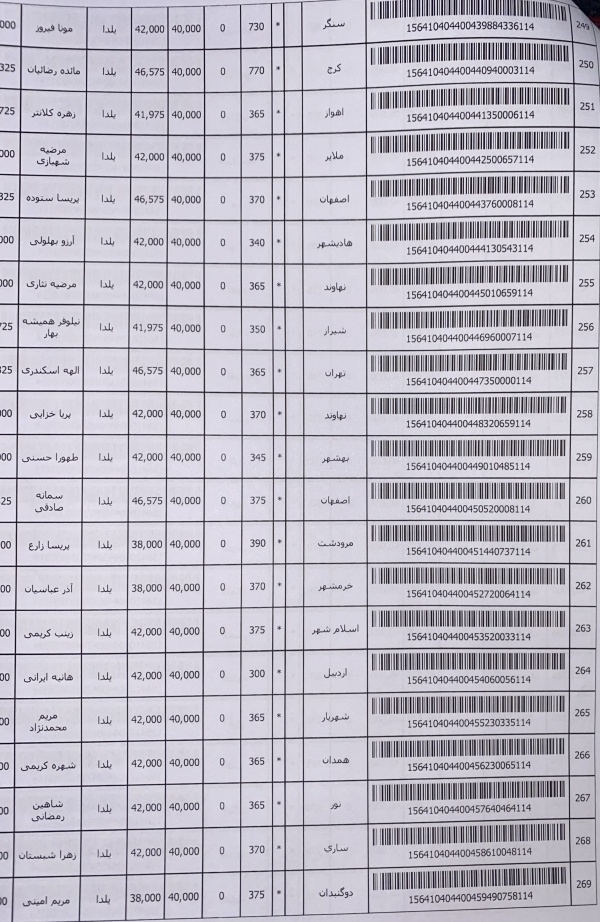 249 156410404400439884336114 سنگر * 730 0 40,000 42,000 یلدا مونا فیروز 000
250 156410404400440940003114 کرج * 770 0 40,000 46,575 یلدا مائده رضائیان 325
251 156410404400441350006114 اهواز * 365 0 40,000 41,975 یلدا زهره کلانتر 725
252 156410404400442500657114 ملایر * 375 0 40,000 42,000 یلدا مرضیه شهبازی 000
253 156410404400443760008114 اصفهان * 370 0 40,000 46,575 یلدا پریسا ستوده 325
254 156410404400444130543114 هادیشهر * 340 0 40,000 42,000 یلدا آرزو بهلولی 000
255 156410404400445010659114 نهاوند * 365 0 40,000 42,000 یلدا مرضیه نثاری 000
256 156410404400446960007114 شیراز * 350 0 40,000 41,975 یلدا نیلوفر همیشه بهار 725
257 156410404400447350000114 تهران * 365 0 40,000 46,575 یلدا الهه اسکندری 325
258 156410404400448320659114 نهاوند * 370 0 40,000 42,000 یلدا پریا خزایی 000
259 156410404400449010485114 بهشهر * 345 0 40,000 42,000 یلدا طهورا حسنی 000
260 156410404400450520008114 اصفهان * 375 0 40,000 46,575 یلدا سمانه صادقی 25
261 156410404400451440737114 مرودشت * 390 0 40,000 38,000 یلدا پریسا زارع 00
262 156410404400452720064114 خرمشهر * 370 0 40,000 38,000 یلدا آذر عباسیان 00
263 156410404400453520033114 اسلام شهر * 375 0 40,000 42,000 یلدا زینب کریمی 00
264 156410404400454060056114 اردبیل * 300 0 40,000 42,000 یلدا هانیه ایرانی 00
265 156410404400455230335114 شهریار * 365 0 40,000 42,000 یلدا مریم محمدنژاد 00
266 156410404400456230065114 همدان * 365 0 40,000 42,000 یلدا شهره کریمی 00
267 156410404400457640464114 نور * 365 0 40,000 42,000 یلدا شاهین رمضانی 00
268 156410404400458610048114 ساري * 370 0 40,000 42,000 یلدا زهرا شبستان 00
269 156410404400459490758114 دوگنبدان * 375 0 40,000 38,000 یلدا مریم امینی 00